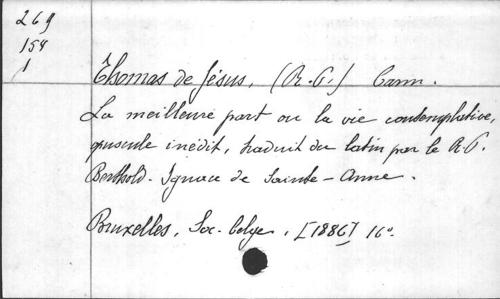 269
154
1
Thomas de Jésus, (R.P.) Carm.
La meilleure part ou la vie contemplative,
opuscule inédit, traduit du latin par le R.P.
Berthold-Ignace de Sainte-Anne.
Bruxelles, Soc. belge, [1886] 16°.